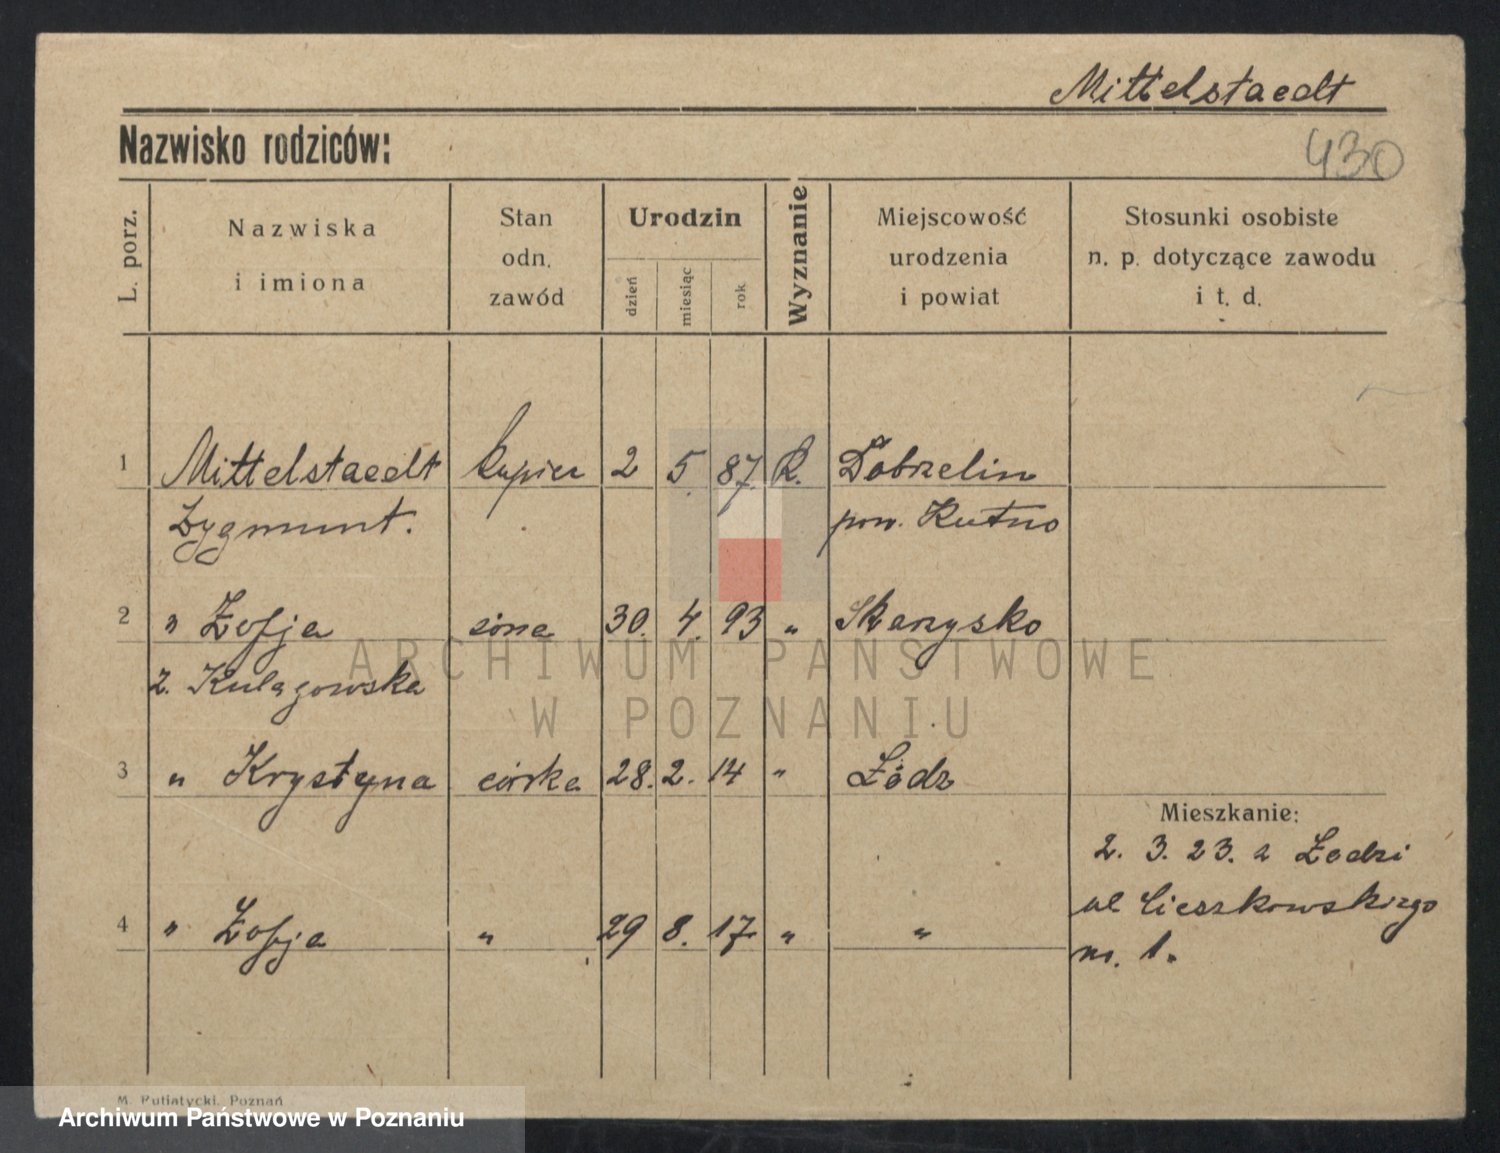 Mittelstaedt
Nazwisko rodziców:
430
L. porz.
Nazwiska
i imiona
Stan
odn.
zawód
Urodzin
dzień
miesiąc
rok
Wyznanie
Miejscowość
urodzenia
i powiat
Stosunki osobiste
n. p. dotyczące zawodu
i t. d.
1 Mittelstaedt kupiec 2 5. 87. R. Dobrzelin
Zygmunt. pow. Kutno
2 " Zofja żona 30. 4. 93 " Skarzysko
z.
3 " Krystyna córka 28. 2. 14 " Łódz
Mieszkanie:
2. 3. 23. z Łodzi
ul Cieszkowskiego
4 " Zofja " 29 8. 17. " "
m. 1.
ARCHIWUM PAŃSTWOWE
W POZNANIU
M. Putiatycki, Poznań
Archiwum Państwowe w Poznaniu